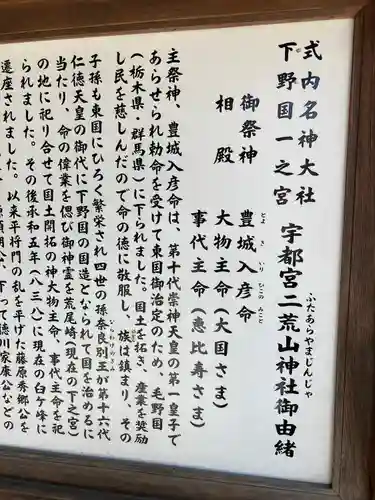 式内名神大社
下野国一之宮 宇都宮二荒山神社御由緒
ふたあらやまじんじゃ
御祭神 豊城入彦命
とよきいりひこのみこと
相殿 大物主命(大国さま)
事代主命(恵比寿さま)
主祭神、豊城入彦命は、第十代崇神天皇の第一皇子で
あらせられ勅命を受けて東国御治定のため、毛野国
(栃木県・群馬県)に下られました。国土を拓き、産業を奨励
し民を慈しんだので命の徳に敬服し、族は鎮まり、その
子孫も東国にひろく繁栄され四世の孫奈良別王が第十六代
仁徳天皇の御代に下野国の国造となられて国を治めるに
当たり、命の偉業を偲び御神霊を荒尾崎(現在の下之宮)
の地に祀り合せて国土開拓の神大物主命、事代主命を祀
られました。その後承和五年(八三八)に現在の臼ケ峰に
遷座されました。以来平将門の乱を平げた藤原秀郷公を
、下って徳川家康公などの